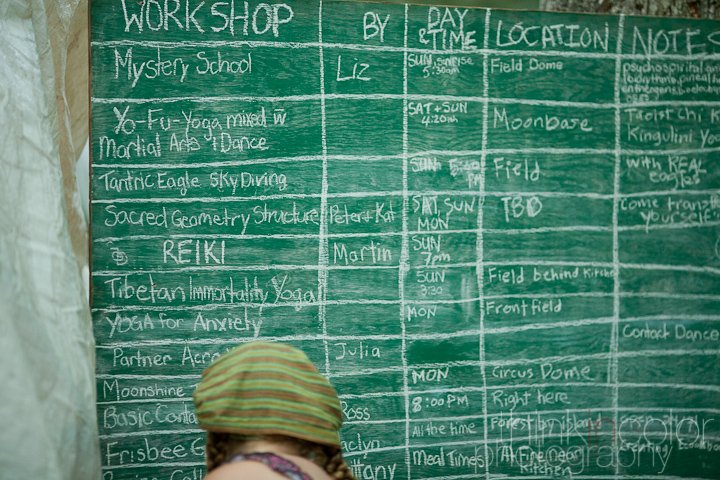 WORKSHOP BY DAY & TIME LOCATION NOTES
Mystery School Liz SUN, sunrise 5:30am Field Dome psychospiritual
Yo-Fu-Yoga mixed w̄ Martial Arts & Dance SAT + SUN 4:20ish Moonbase Taoist Chi K
Kingulini Yo
Tantric Eagle Sky Diving SUN Field with REAL eagles
Sacred Geometry Structure Peter + Kat SAT, SUN MON TBD Come transf yourself
REIKI Martin SUN 7pm
Tibetan Immortality Yoga SUN 3:30 Field behind Kitchen
YOGA for Anxiety MON Front field
Partner Acro Julia Contact Dance
Moonshine MON Circus Dome
Basic Conta Ross 8:00PM Right here
Frisbee G aclyn All the time Forest by island
ittany Meal Times At Fire near Kitchen